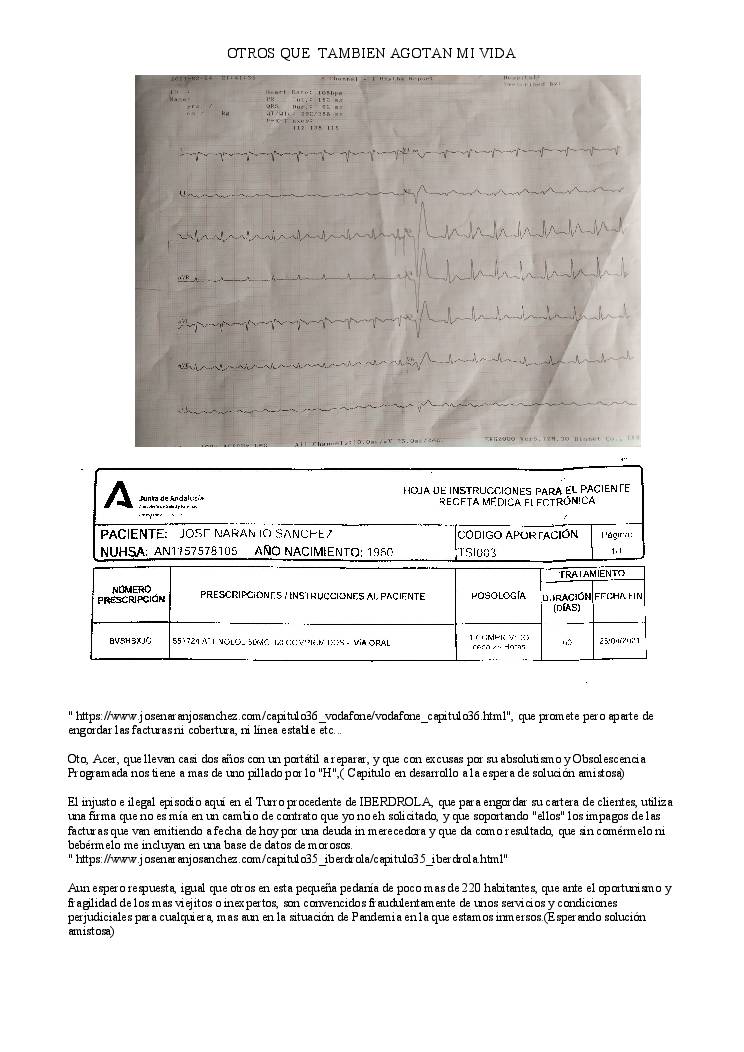 OTROS QUE TAMBIEN AGOTAN MI VIDA
Heart Rate: 108bpm
Name:
kg
112 138 115
I
aVR
Junta de Andalucía
HOJA DE INSTRUCCIONES PARA EL PACIENTE
RECETA MÉDICA ELECTRÓNICA
PACIENTE: JOSE NARANJO SANCHEZ
CÓDIGO APORTACIÓN
Página:
NUHSA: AN1157578105 AÑO NACIMIENTO: 1960
TSI003
1/1
TRATAMIENTO
NÚMERO PRESCRIPCIÓN
PRESCRIPCIONES / INSTRUCCIONES AL PACIENTE
POSOLOGÍA
DURACIÓN (DÍAS)
FECHA FIN
COMPRIMIDOS - VÍA ORAL
1 COMPRIMIDO
" https://www.josenaranjosanchez.com/capitulo36_vodafone/vodafone_capitulo36.html", que promete pero aparte de
engordar las facturas ni cobertura, ni línea estable etc...
Oto, Acer, que llevan casi dos años con un portátil a reparar, y que con excusas por su absolutismo y Obsolescencia
Programada nos tiene a mas de uno pillado por lo "H",( Capitulo en desarrollo a la espera de solución amistosa)
El injusto e ilegal episodio aquí en el Turro procedente de IBERDROLA, que para engordar su cartera de clientes, utiliza
una firma que no es mía en un cambio de contrato que yo no eh solicitado, y que soportando "ellos" los impagos de las
facturas que van emitiendo a fecha de hoy por una deuda in merecedora y que da como resultado, que sin comérmelo ni
bebérmelo me incluyan en una base de datos de morosos.
" https://www.josenaranjosanchez.com/capitulo35_iberdrola/capitulo35_iberdrola.html"
Aun espero respuesta, igual que otros en esta pequeña pedanía de poco mas de 220 habitantes, que ante el oportunismo y
fragilidad de los mas viejitos o inexpertos, son convencidos fraudulentamente de unos servicios y condiciones
perjudiciales para cualquiera, mas aun en la situación de Pandemia en la que estamos inmersos.(Esperando solución
amistosa)